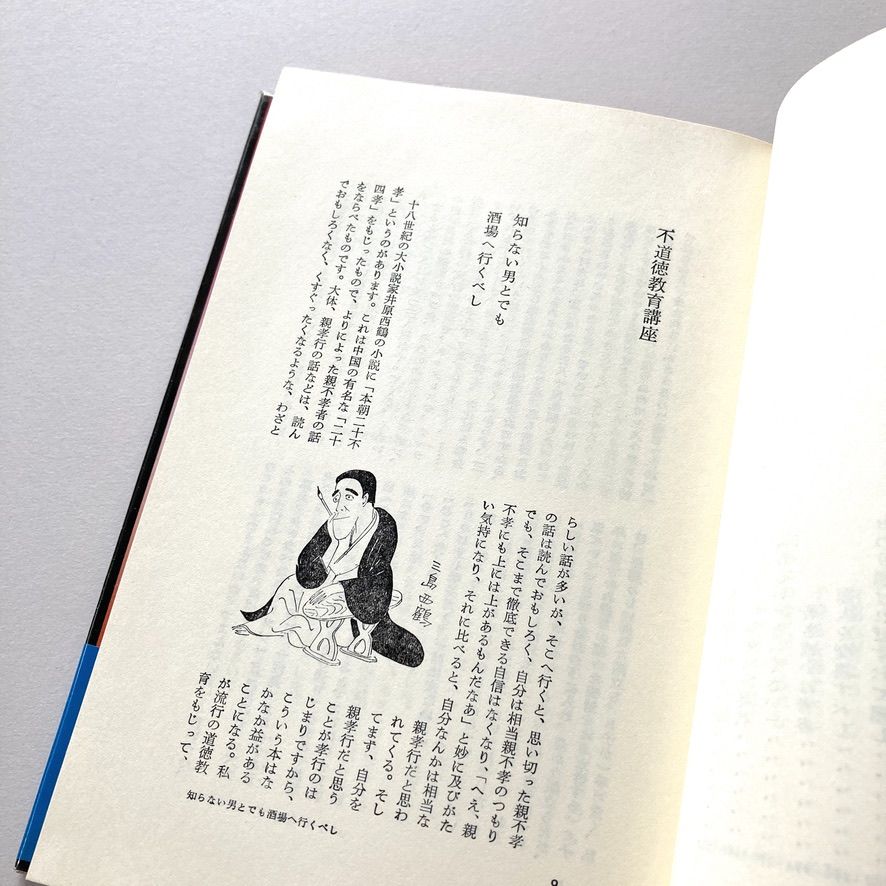 不道徳教育講座
知らない男とでも
酒場へ行くべし
十八世紀の大小説家井原西鶴の小説に「本朝二十不
孝」というのがあります。これは中国の有名な「二十
四孝」をもじったもので、よりによった親不孝者の話
をならべたものです。大体、親孝行の話などは、読ん
でおもしろくなく、くすぐったくなるような、わざと
らしい話が多いが、そこへ行くと、思い切った親不孝
の話は読んでおもしろく、自分は相当親不孝のつもり
でも、そこまで徹底できる自信はなくなり、「へえ、親
不孝にも上には上があるもんだなあ」と妙に及びがた
い気持になり、それに比べると、自分なんかは相当な
親孝行だと思わ
れてくる。そし
てまず、自分を
親孝行だと思う
ことが孝行のは
じまりですから、
こういう本はな
かなか益がある
ことになる。私
が流行の道徳教
育をもじって、
三島西鶴
知らない男とでも酒場へ行くべし
9